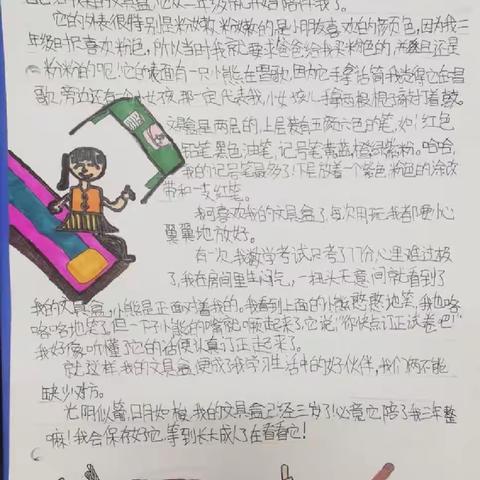 它的外表很特别是粉嫩嫩,粉嫩嫩的是小朋友喜欢的颜色,因为我三
年级时只喜欢粉色,所以当时我就要求爸爸给我买粉色的,并且还是
粉粉的呢!它的表面有一只小熊在唱歌,因为它手拿话筒我觉得它在唱
歌,旁边还有一个小女孩,那一定代表我,小女孩儿手拿两根棍子敲打着鼓。
文具盒是两层的,上层装着五颜六色的笔,如:红色
铅笔黑色油笔,记号笔青蓝橙绿紫粉。哈哈,
我的记号笔最多了!下层放着一个紫色粉色的涂改
带和一支红笔。
我可喜欢我的文具盒了,每次用完我都要小心
翼翼地放好。
有一次我数学考试只考了77分心里难过极
了,我在房间里生闷气,一扭头无意间就看到了
我的文具盒,小熊是正面对着我的。我看到上面的小熊憨憨地笑,我也咯
咯咯地笑了但一下子小熊的嘴就噘起来了,它说:"你快点订正试卷吧!"
我好像听懂了它的话便认真订正起来了。
就这样我的文具盒,便成了我学习生活中的好伙伴,我们俩不能
缺少对方。
光阴似箭,日月如梭,我的文具盒已经三岁了!必竟它陪了我三年整
嘛!我会保存好它,等到长大成人了在看看它!